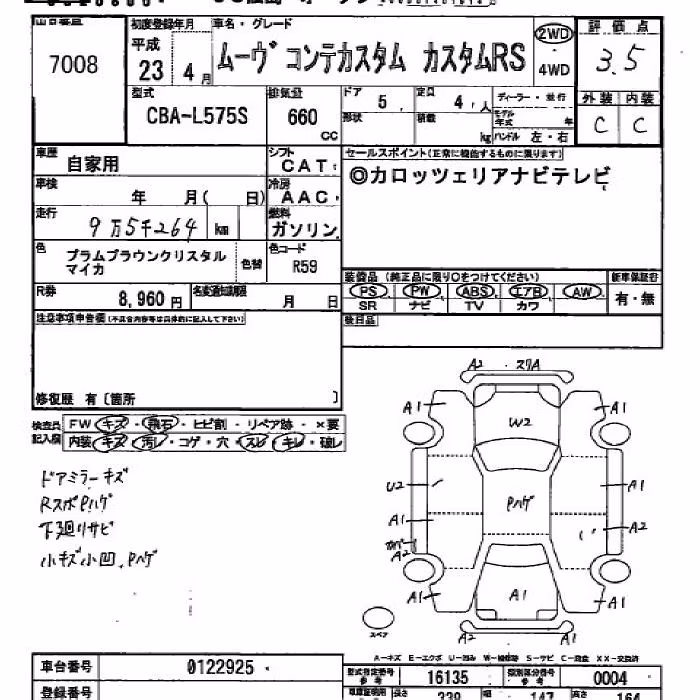 7008
初度登録年月 平成 23 4 月
車名・グレード
ムーヴ コンテカスタム カスタムRS
2WD
・
4WD
評価点
3.5
外装 内装
C C
型式
CBA-L575S
排気量
660
CC
ドア 5
定員 4 人
形状
積載 kg
ディーラー・並行
モデル年式 年
ハンドル 左・右
車歴 自家用
シフト CAT
セールスポイント(正常に機能するものに限ります)
◎カロッツェリアナビテレビ
車検 年 月( 日)
冷房 AAC
走行 9万5千264 km
燃料 ガソリン
色 プラムブラウンクリスタル
マイカ
色替
色コード
R59
装備品(純正品に限り○をつけてください)
新車保証書
PS PW ABS エアB AW
SR ナビ TV カワ
有・無
R券 8,960 円
名変通知期限 月 日
後日品
注意事項申告欄(不具合内容等は具体的に記入して下さい)
修復歴 有〔箇所 〕
検査員
記入欄
FW キズ・飛石・ヒビ割・リペア跡・×要
内装 キズ・汚レ・コゲ・穴・スレ・キレ・破レ
ドアミラーキズ
RスポPハゲ
下廻りサビ
小キズ小凹、Pハゲ
A2 スリA
A1 A1
W2
U2 A1
Pハゲ
A1 A2
A2
A1 A1 A1
A2 A1
スペア
A-キズ E-エクボ U-凹み W-補修跡 S-サビ C-腐食 XX-交換済
車台番号 0122925
型式指定番号 16135
類別区分番号 0004
登録番号
長さ 339 幅 147 高さ 164